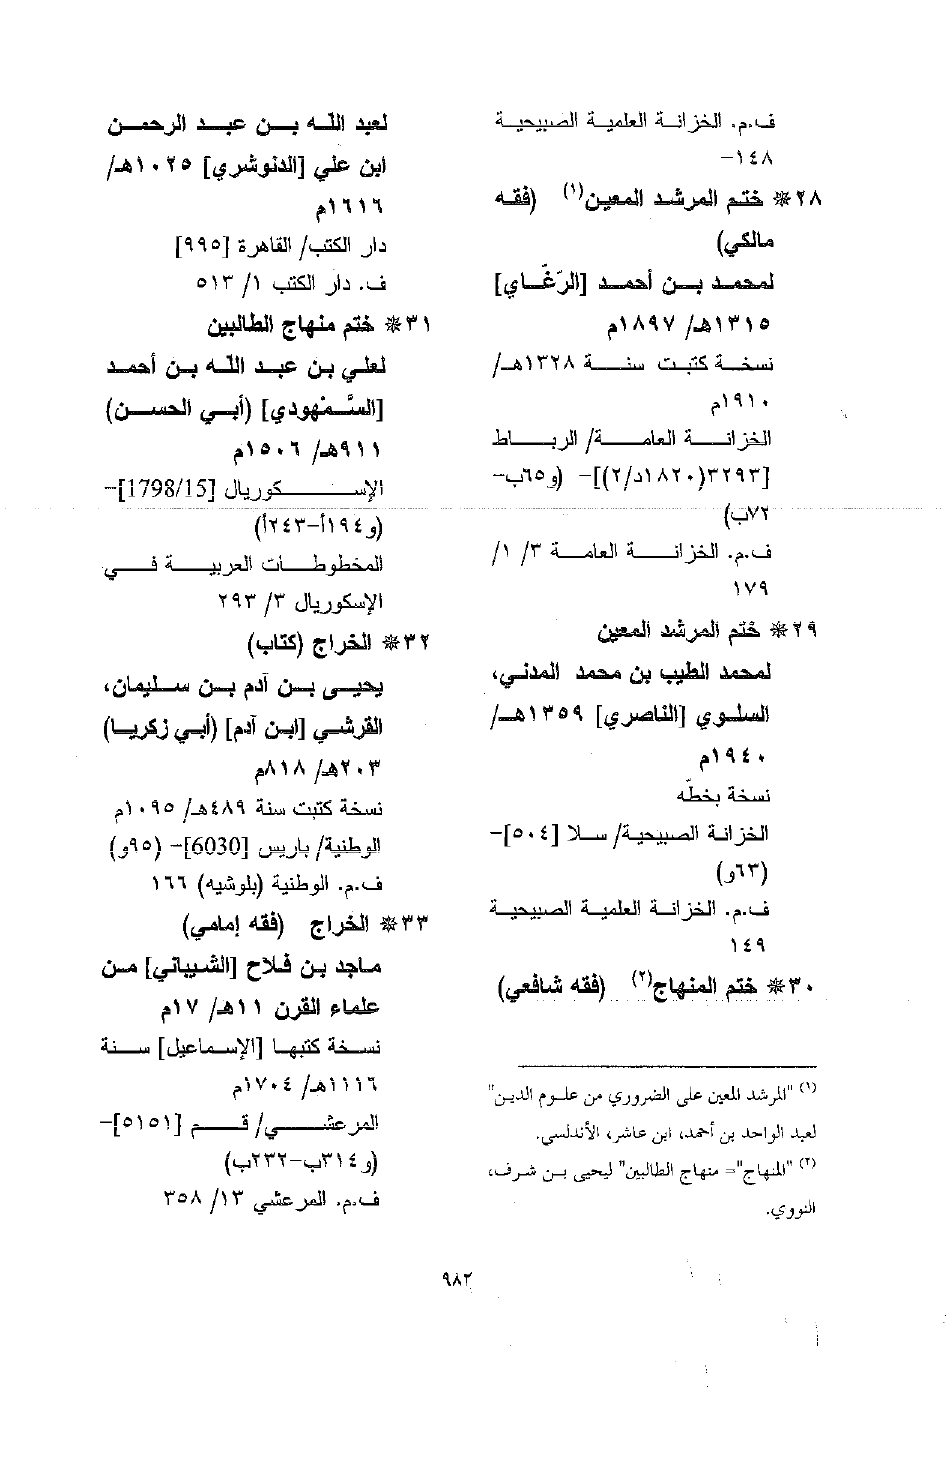 ف.م. الخزانة العلمية الصبيحية
١٤٨-
٢٨* ختم المرشد المعين(١) (فقه
مالكي)
لمحمد بن أحمد [الرّغّاي]
١٣١٥هـ/ ١٨٩٧م
نسخة كتبت سنة ١٣٢٨هـ/
١٩١٠م
الخزانة العامة/ الرباط
[٣٢٩٣(١٨٢٠د/٢)]- (و٦٥ب-
٧٢ب)
ف.م. الخزانة العامة ٣/ ١/
١٧٩
٢٩* ختم المرشد المعين
لمحمد الطيب بن محمد المدني،
السلوي [الناصري] ١٣٥٩هـ/
١٩٤٠م
نسخة بخطّه
الخزانة الصبيحية/ سلا [٥٠٤]-
(٦٣و)
ف.م. الخزانة العلمية الصبيحية
١٤٩
٣٠* ختم المنهاج(٢) (فقه شافعي)
(١) "المرشد المعين على الضروري من علوم الدين"
لعبد الواحد بن أحمد، ابن عاشر، الأندلسي.
(٢) "المنهاج"= منهاج الطالبين" ليحيى بن شرف،
النووي.
لعبد الله بن عبد الرحمن
ابن علي [الدنوشري] ١٠٢٥هـ/
١٦١٦م
دار الكتب/ القاهرة [٩٩٥]
ف. دار الكتب ١/ ٥١٣
٣١* ختم منهاج الطالبين
لعلي بن عبد الله بن أحمد
[السَّمْهودي] (أبي الحسن)
٩١١هـ/ ١٥٠٦م
الإسكوريال [1798/15]-
(و١٩٤أ-٢٤٣أ)
المخطوطات العربية في
الإسكوريال ٣/ ٢٩٣
٣٢* الخراج (كتاب)
يحيى بن آدم بن سليمان،
القرشي [ابن آدم] (أبي زكريا)
٢٠٣هـ/ ٨١٨م
نسخة كتبت سنة ٤٨٩هـ/ ١٠٩٥م
الوطنية/ باريس [6030]- (٩٥و)
ف.م. الوطنية (بلوشيه) ١٦٦
٣٣* الخراج (فقه إمامي)
ماجد بن فلاح [الشيباني] من
علماء القرن ١١هـ/ ١٧م
نسخة كتبها [الإسماعيل] سنة
١١١٦هـ/ ١٧٠٤م
المرعشي/ قم [٥١٥١]-
(و٣١٤ب-٢٣٢ب)
ف.م. المرعشي ١٣/ ٣٥٨
٩٨٢